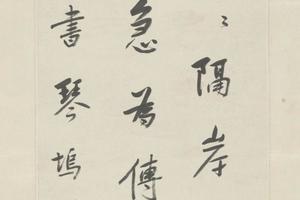 〻隔岸
急為傳
書琴塢